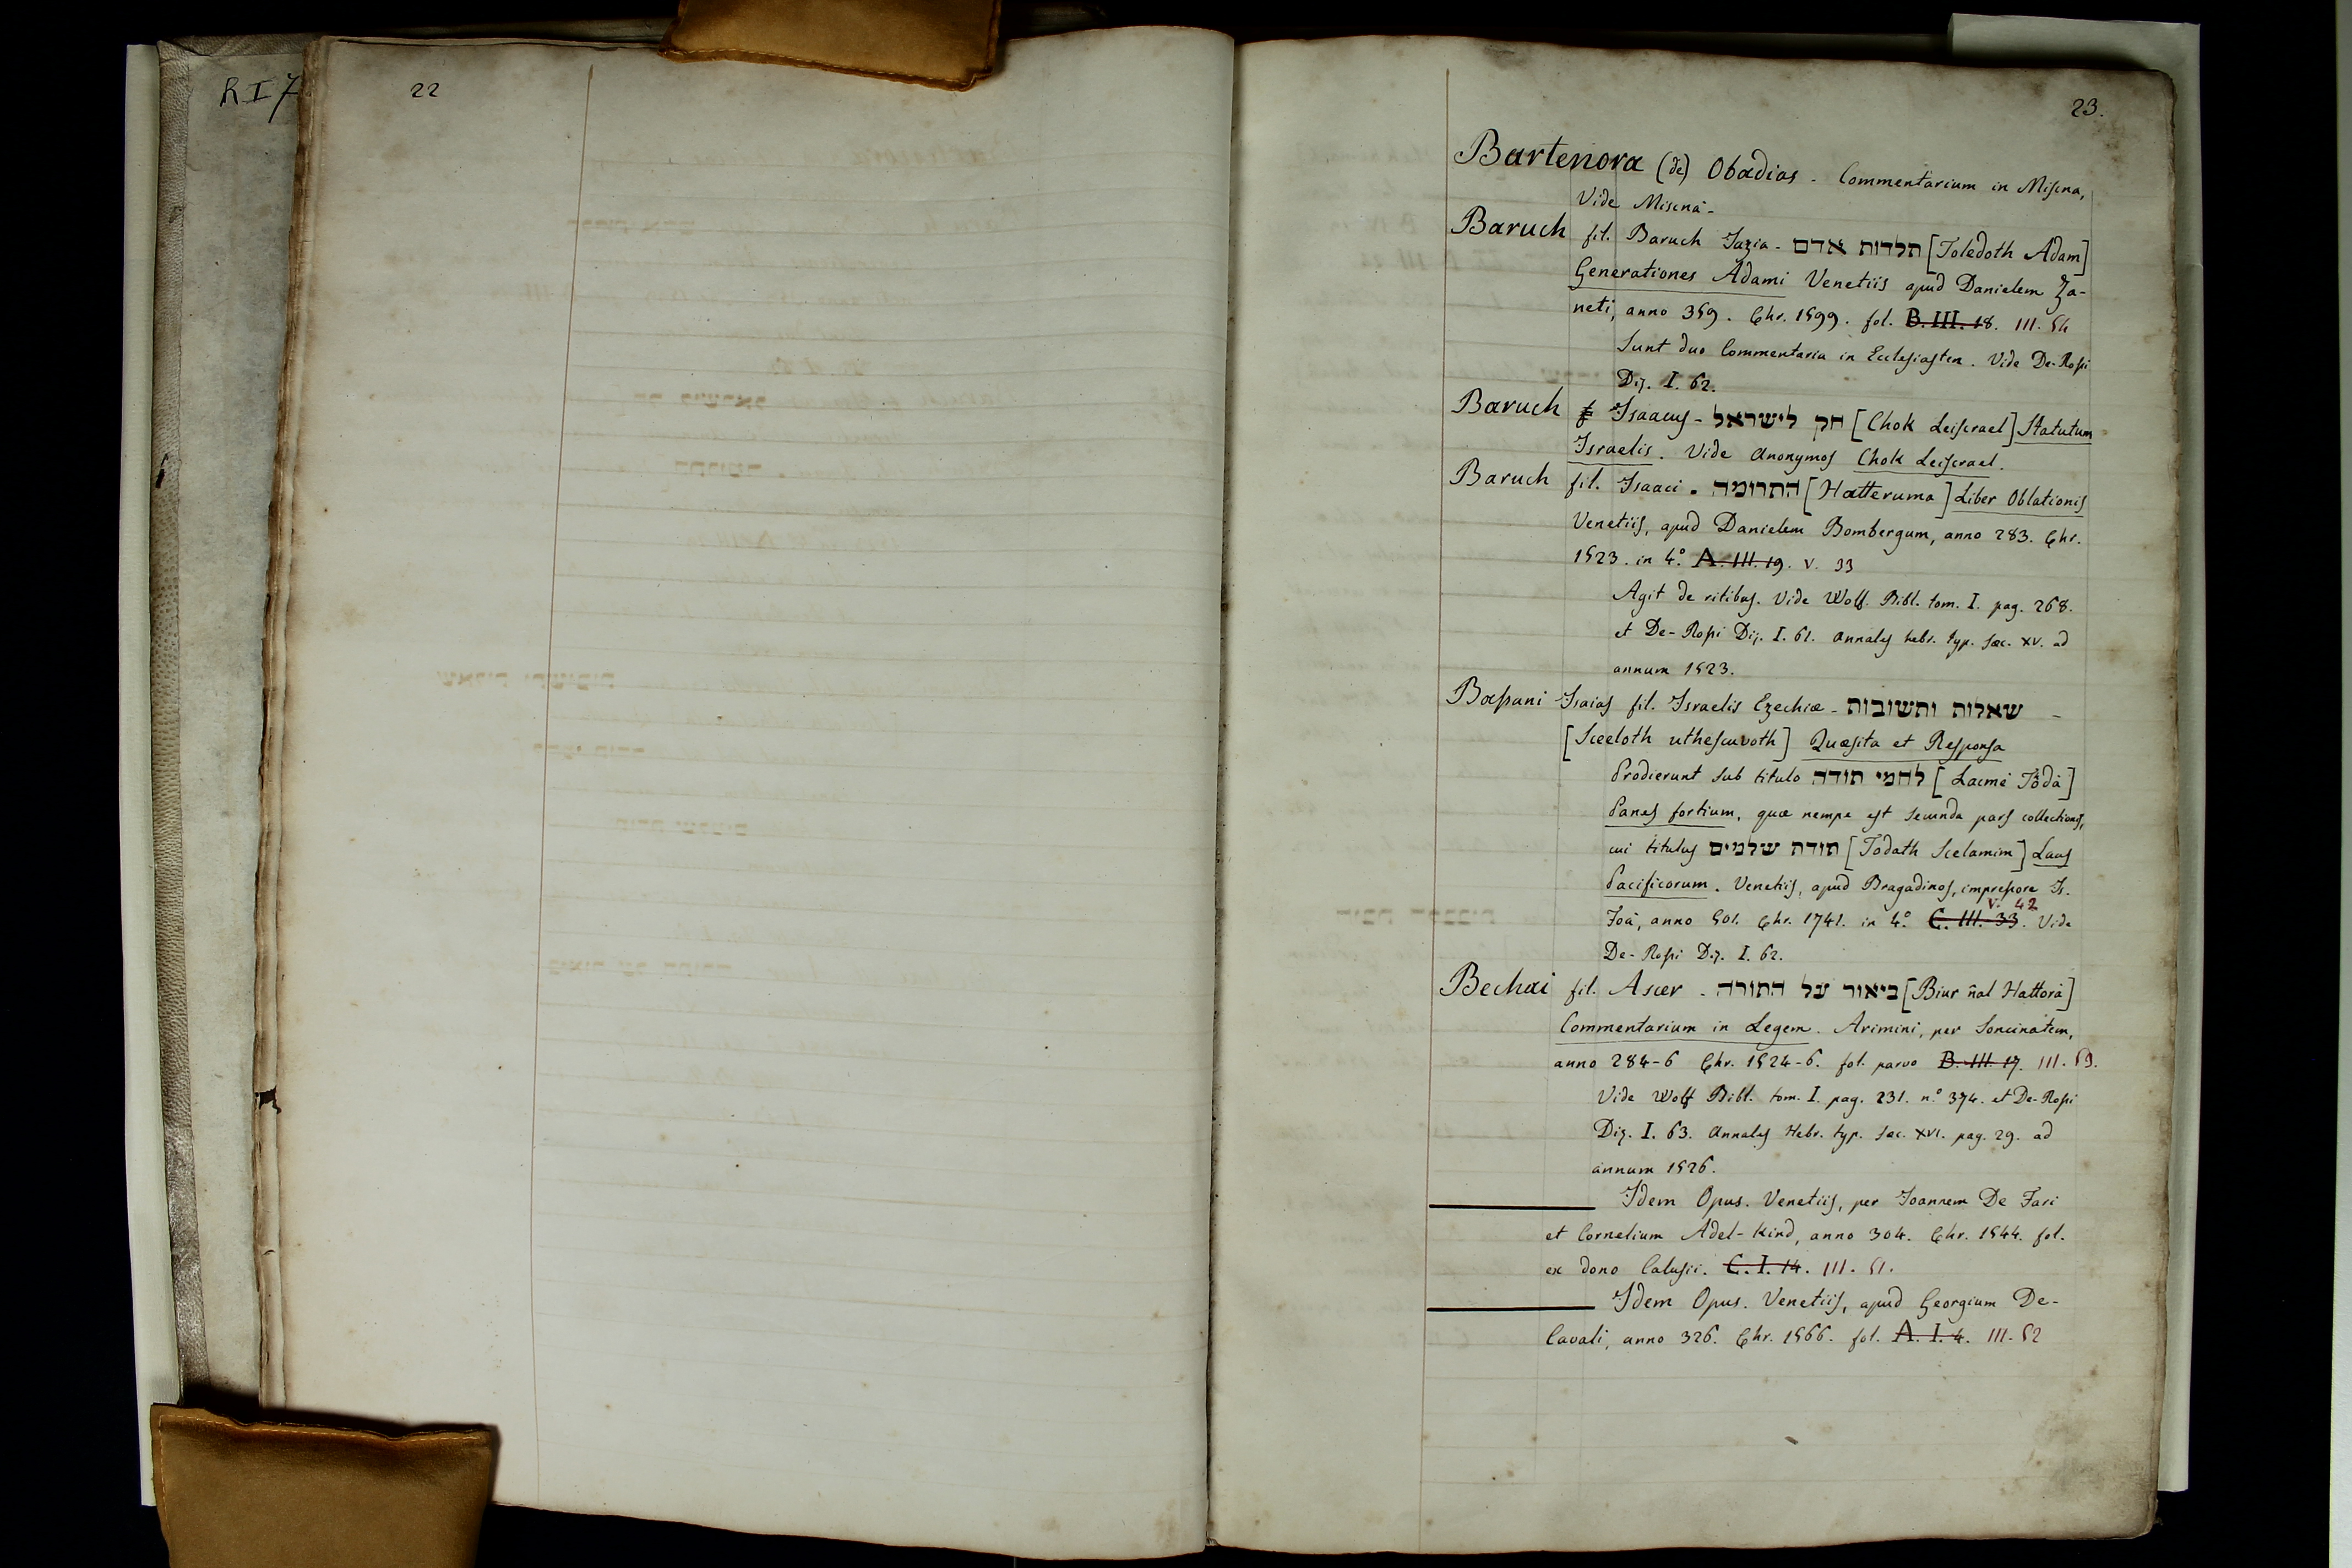 R I 7
22
23.
Bartenora (de) Obadias - Commentarium in Miscna,
Vide Miscnà -
Baruch fil. Baruch Iazia - תלדות אדם [Toledoth Adam]
Generationes Adami Venetiis apud Danielem Za-
neti, anno 359. Chr. 1599. fol. B. III. 18. III. 54
Sunt duo Commentaria in Ecclesiasten. Vide De-Rossi
Diz. I. 62.
Baruch Isaacus - חק לישראל [Chok Leiscrael] Statutum
Israelis. Vide Anonymos Chok Leiscrael.
Baruch fil. Isaaci - התרומה [Hatteruma] Liber Oblationis
Venetiis, apud Danielem Bombergum, anno 283. Chr.
1523. in 4.° A. III. 19. V. 33
Agit de ritibus. Vide Wolf. Bibl. tom. I. pag. 268.
et De-Rossi Diz. I. 61. Annales hebr. typ. sæc. XV. ad
annum 1523.
Bassani Isaias fil. Israelis Ezechiæ - שאלות ותשובות -
[Sceeloth uthescuvoth] Quæsita et Responsa
Prodierunt sub titulo לחמי תודה [Lacmè Tòdà]
Panes fortium, quæ nempe est secunda pars collectionis,
cui titulus תודת שלמים [Tòdath Scelamim] Laus
Pacificorum. Venetiis, apud Bragadinos, impressore Is.
V. 42
Foà, anno 501. Chr. 1741. in 4.° C. III. 33. Vide
De-Rossi Diz. I. 62.
Bechai fil. Ascer - ביאור על התורה [Biur ñal Hattorà]
Commentarium in Legem. Arimini, per Soncinatem,
anno 284-6 Chr. 1524-6. fol. parvo B. III. 17. III. 53.
Vide Wolf Bibl. tom. I. pag. 231. n.° 374. et De-Rossi
Diz. I. 63. Annales Hebr. typ. sæc. XVI. pag. 29. ad
annum 1526.
Idem Opus. Venetiis, per Joannem De Fari
et Cornelium Adel-Kind, anno 304. Chr. 1544. fol.
ex dono Calusii. C. I. 14. III. 51.
Idem Opus. Venetiis, apud Georgium De-
Cavali, anno 326. Chr. 1566. fol. A. I. 4. III. 52